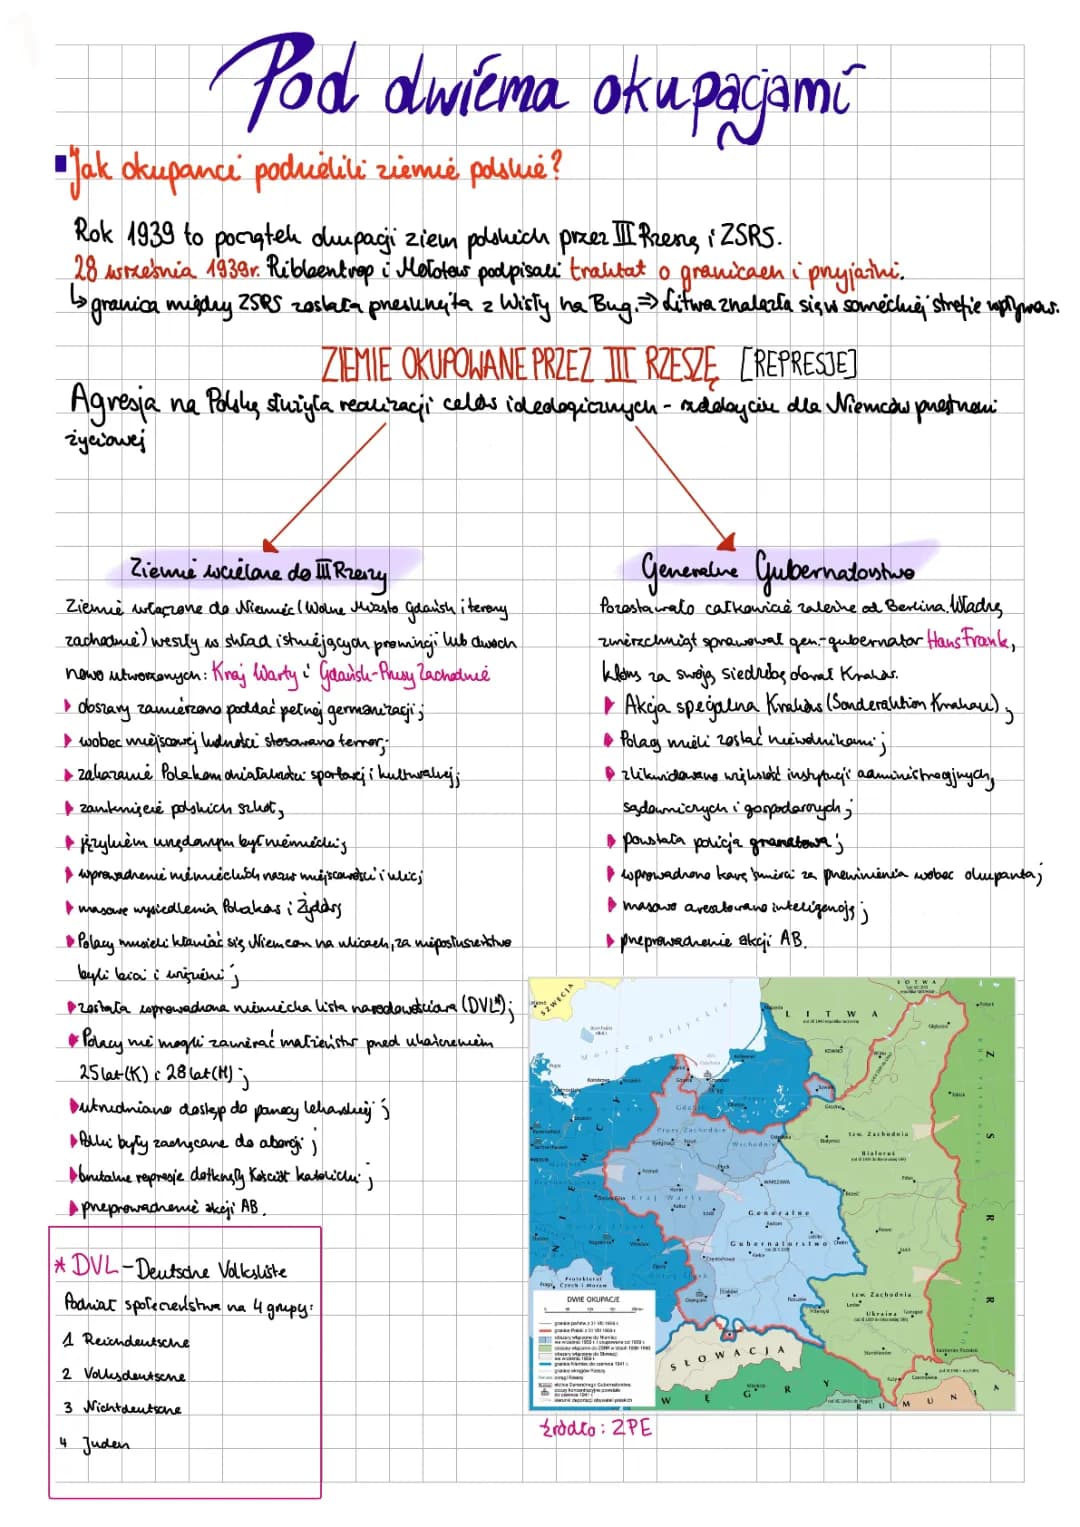 Pod dwiema okupacjami
Jak okupanci podzielili ziemie polskie?
Rok 1939 to początek okupacji ziem polskich przez III Rzeszę i ZSRS.
28 września 1939r. Ribbentrop i Mołotow podpisali traktat o granicach i przyjaźni.
↳ granica między ZSRS została przesunięta z Wisły na Bug. ⇒ Litwa znalazła się w sowieckiej strefie wpływów.
ZIEMIE OKUPOWANE PRZEZ III RZESZĘ [REPRESJE]
Agresja na Polskę służyła realizacji celów ideologicznych - zdobyciu dla Niemców przestrzeni
życiowej
Ziemie wcielone do III Rzeszy
Ziemie włączone do Niemiec (Wolne Miasto Gdańsk i tereny
zachodnie) weszły w skład istniejących prowincji lub dwóch
nowo utworzonych: Kraj Warty i Gdańsk-Prusy Zachodnie
obszary zamierzano poddać pełnej germanizacji;
wobec miejscowej ludności stosowano terror;
zakazanie Polakom działalności sportowej i kulturalnej;
zamknięcie polskich szkół;
językiem urzędowym był niemiecki;
wprowadzenie niemieckich nazw miejscowości i ulic;
masowe wysiedlenia Polaków i Żydów;
Polacy musieli kłaniać się Niemcom na ulicach, za nieposłuszeństwo
byli bici i więzieni;
została wprowadzona niemiecka lista narodowościowa (DVL*);
Polacy nie mogli zawierać małżeństw przed ukończeniem
25 lat (K) i 28 lat (M);
utrudniano dostęp do pomocy lekarskiej;
Polki były zachęcane do aborcji;
brutalne represje dotknęły Kościół katolicki;
przeprowadzenie akcji AB.
* DVL - Deutsche Volksliste
Podział społeczeństwa na 4 grupy:
1 Reichsdeutsche
2 Volksdeutsche
3 Nichtdeutsche
4 Juden
Generalne Gubernatorstwo
Pozostawało całkowicie zależne od Berlina. Władzę
zwierzchnią sprawował gen.-gubernator Hans Frank,
który za swoją siedzibę obrał Kraków.
Akcja specjalna Kraków (Sonderaktion Krakau);
Polacy mieli zostać niewolnikami;
zlikwidowano większość instytucji administracyjnych,
sądowniczych i gospodarczych;
powstała policja granatowa;
wprowadzono karę śmierci za przewinienia wobec okupanta;
masowo aresztowano inteligencję;
przeprowadzenie akcji AB.
SZWECJA
Morze Bałtyckie
ŁOTWA
LITWA
KOWNO
NIEMCY
Prusy Zachodnie
Kraj Warty
WARSZAWA
Generalne
Gubernatorstwo
tzw. Zachodnia
Białoruś
tzw. Zachodnia
Ukraina
ZSRR
Protektorat
Czech i Moraw
SŁOWACJA
WĘGRY
RUMUNIA
DWIE OKUPACJE
źródło: ZPE